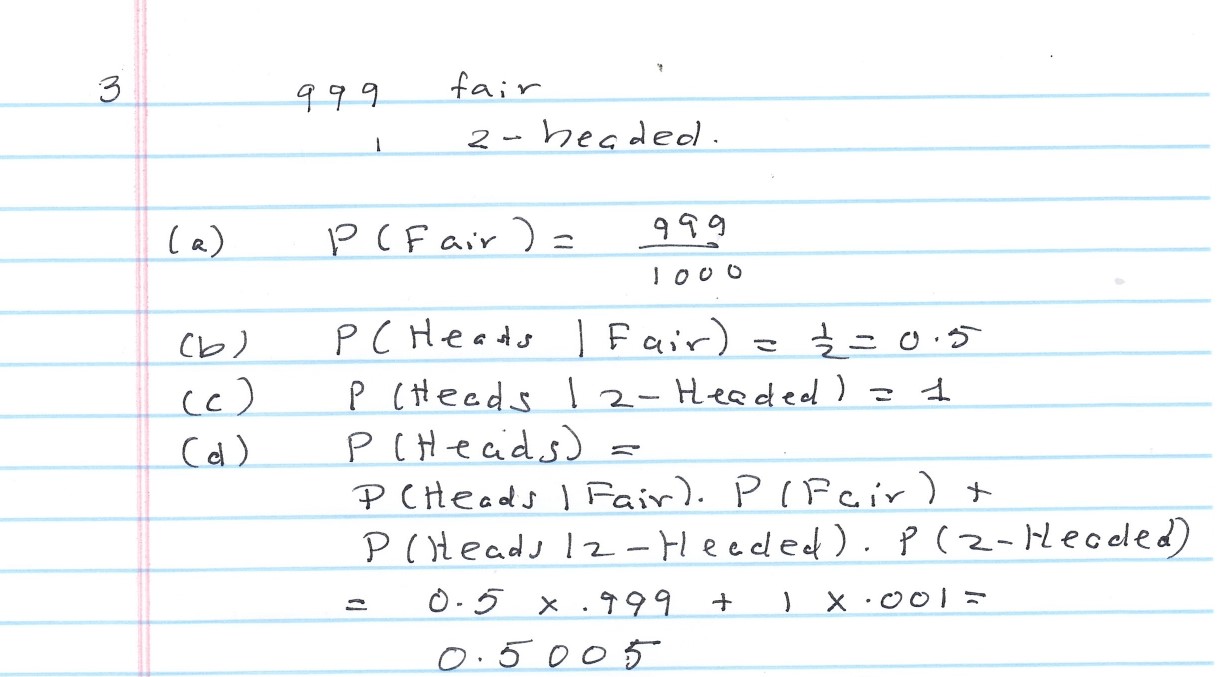 3 999 fair
1 2-headed.
(a) P(Fair) = 999/1000
(b) P(Heads | Fair) = 1/2 = 0.5
(c) P(Heads | 2-Headed) = 1
(d) P(Heads) =
P(Heads | Fair). P(Fair) +
P(Heads | 2-Headed). P(2-Headed)
= 0.5 x .999 + 1 x .001 =
0.5005